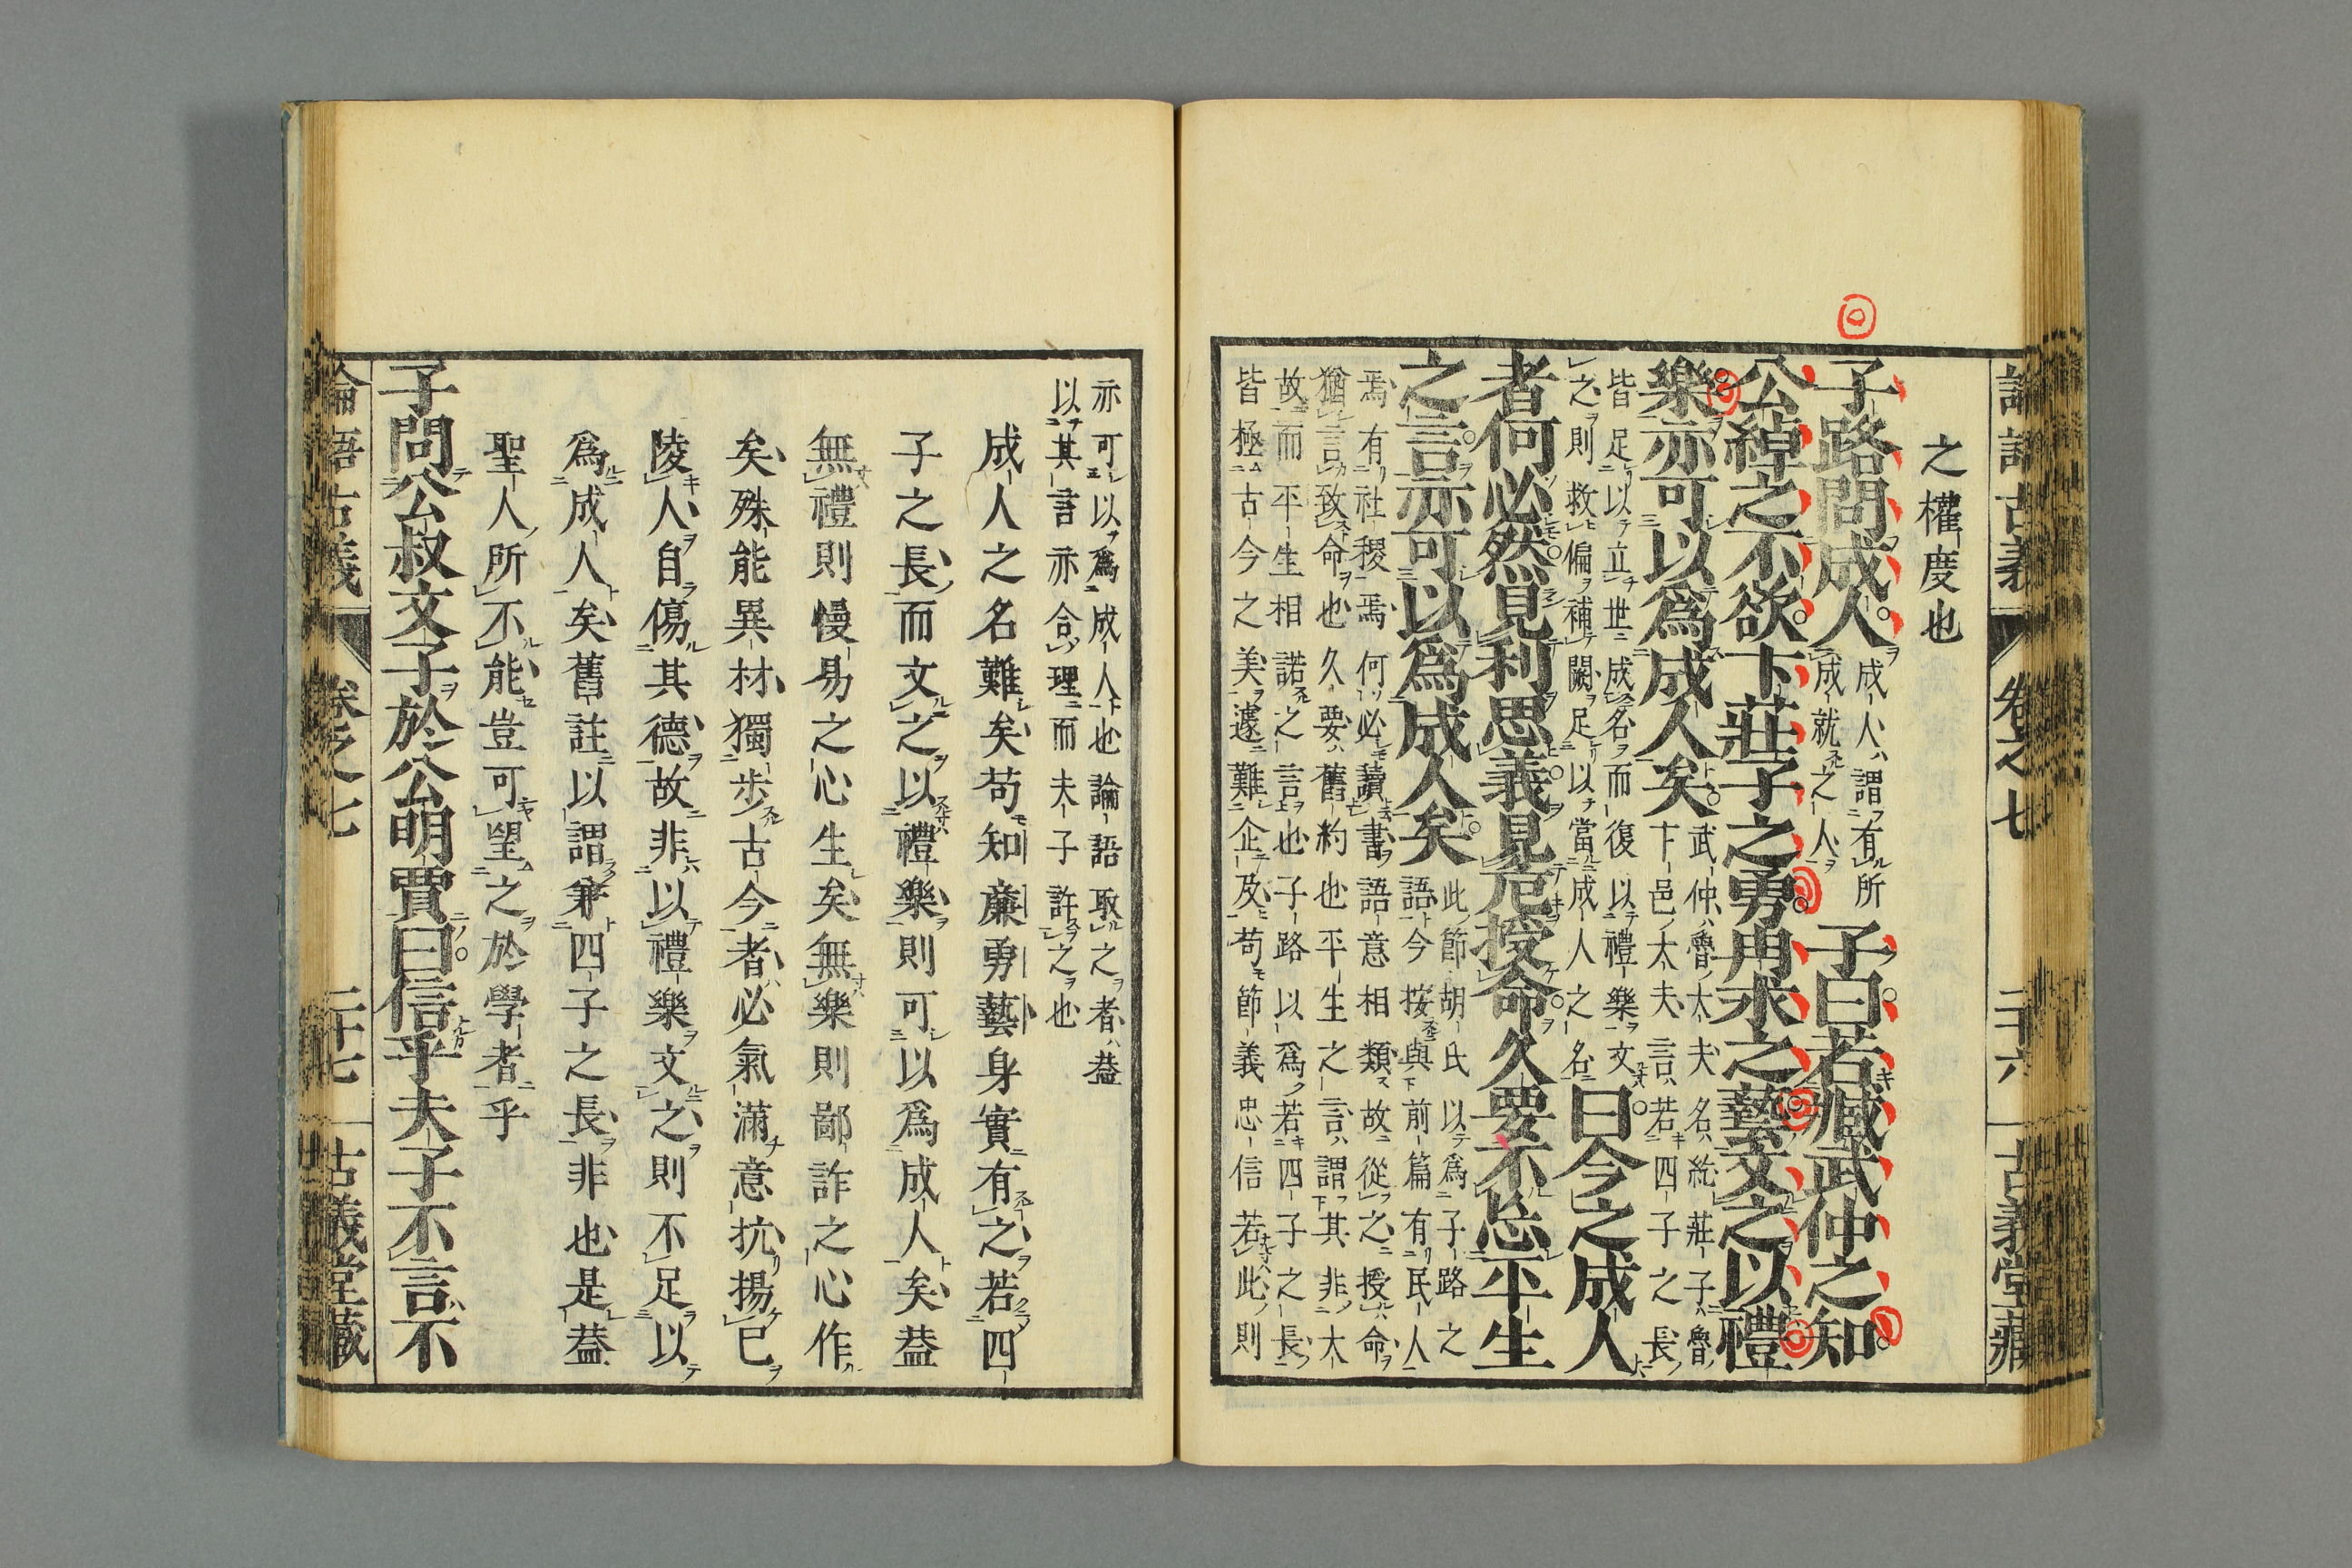 論語古義 卷之七 二十六 古義堂藏
之權度也
子路問成人
成人謂有所
成就之人
子曰若臧武仲之知
公綽之不欲卞莊子之勇冉求之藝文之以禮
樂亦可以爲成人矣
武仲魯大夫名紇莊子魯
卞邑大夫言若四子之長
皆足以立世成名而復以禮樂文
之則救偏補闕足以當成人之名
曰今之成人
者何必然見利思義見危授命久要不忘平生
之言亦可以爲成人矣
此節胡氏以爲子路之
語今按與前篇有民人
焉有社稷焉何必讀書語意相類故從之授命
猶言致命也久要舊約也平生之言謂其非大
故而平生相諾之言也子路以爲若四子之長
皆極古今之美遽難企及苟節義忠信若此則
亦可以爲成人也論語取之者葢
以其言亦合理而夫子許之也
成人之名難矣苟知廉勇藝身實有之若四
子之長而文之以禮樂則可以爲成人矣葢
無禮則慢易之心生矣無樂則鄙詐之心作
矣殊能異材獨步古今者必氣滿意抗揚己
陵人自傷其德故非以禮樂文之則不足以
爲成人矣舊註以謂兼四子之長非也是葢
聖人所不能豈可望之於學者乎
子問公叔文子於公明賈曰信乎夫子不言不
論語古義 卷之七 二十七 古義堂藏